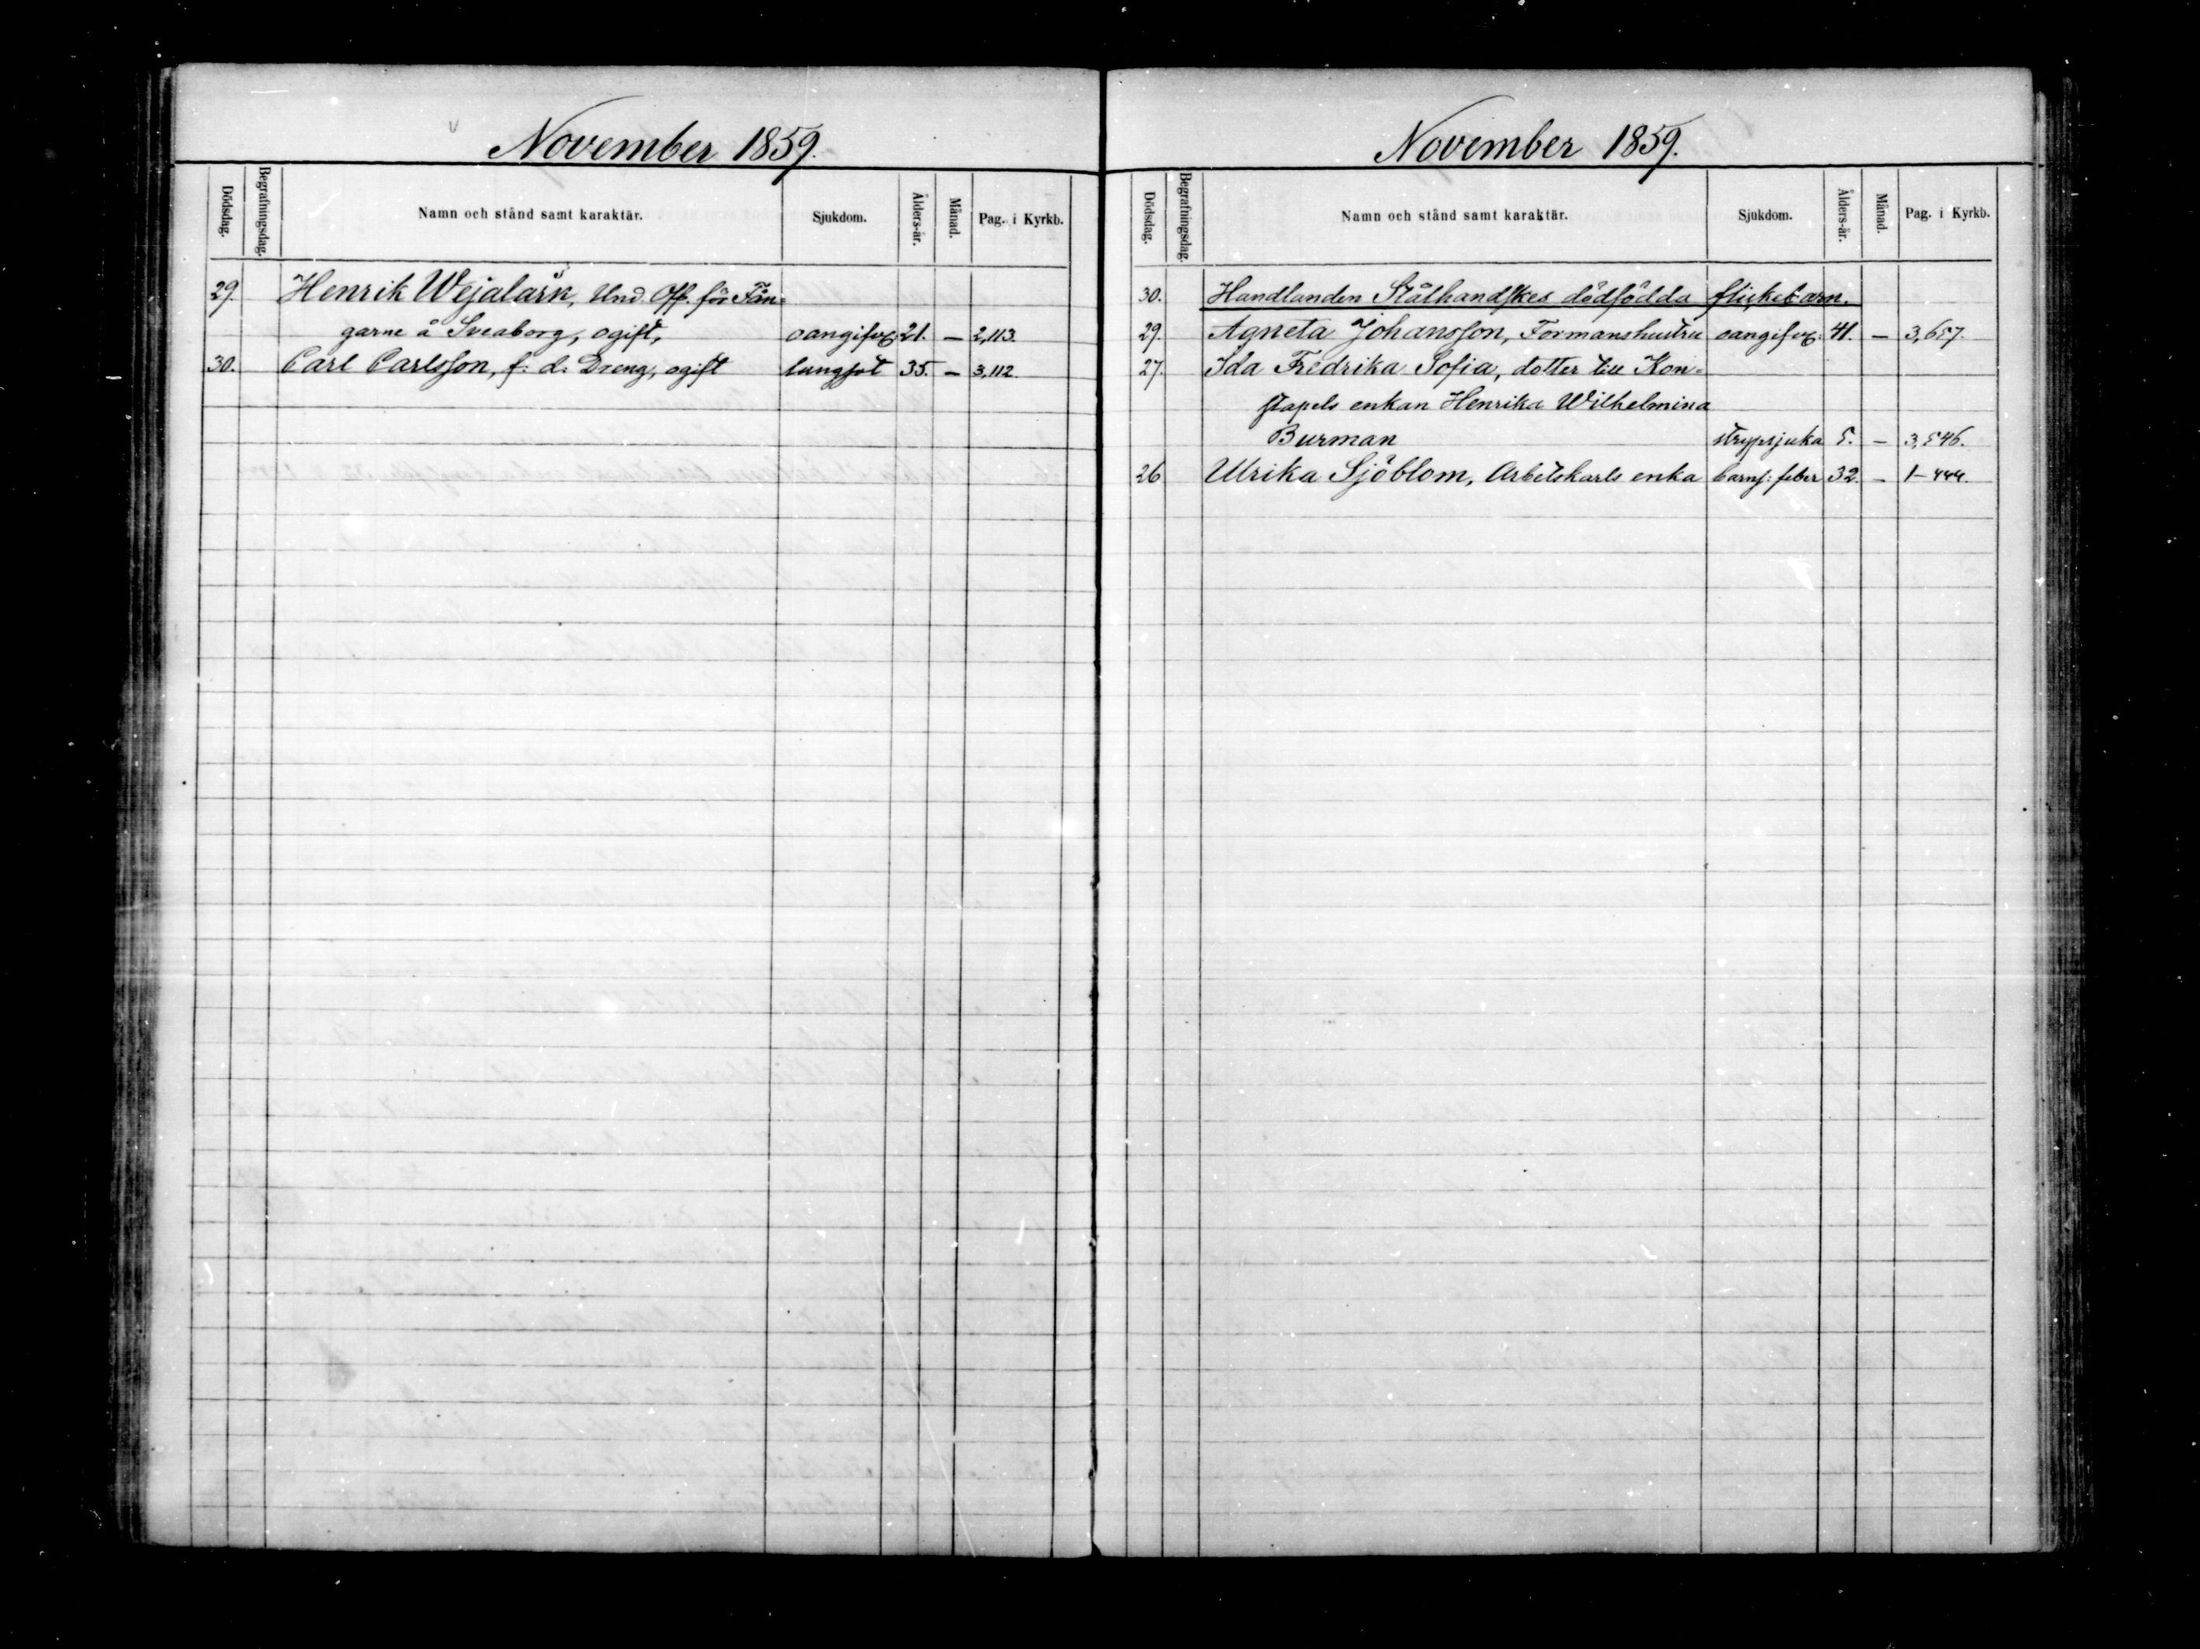 November 1859.
Dödsdag. Begrafningsdag. Namn och stånd samt karaktär. Sjukdom. Ålders-år. Månad. Pag. i Kyrkb.
29. Henrik Wejalärk, Und. Off. för Fån-
garne å Sveaborg, ogift, oangifven 21. — 2,113.
30. Carl Carlsson, f: d: Dreng, ogift lungsot 35. — 3,112.
November 1859.
Dödsdag. Begrafningsdag. Namn och stånd samt karaktär. Sjukdom. Ålders-år. Månad. Pag. i Kyrkb.
30. Handlanden Stålhandskes dödfödda flickebarn.
29. Agneta Johansson, Formanshustru oangifven 41. — 3,657.
27. Ida Fredrika Sofia, dotter till Kon-
stapels enkan Henrika Wilhelmina
Burman strypsjuka 5. — 3,546.
26 Ulrika Sjöblom, Arbetskarls enka barns: feber 32. — 1-444.